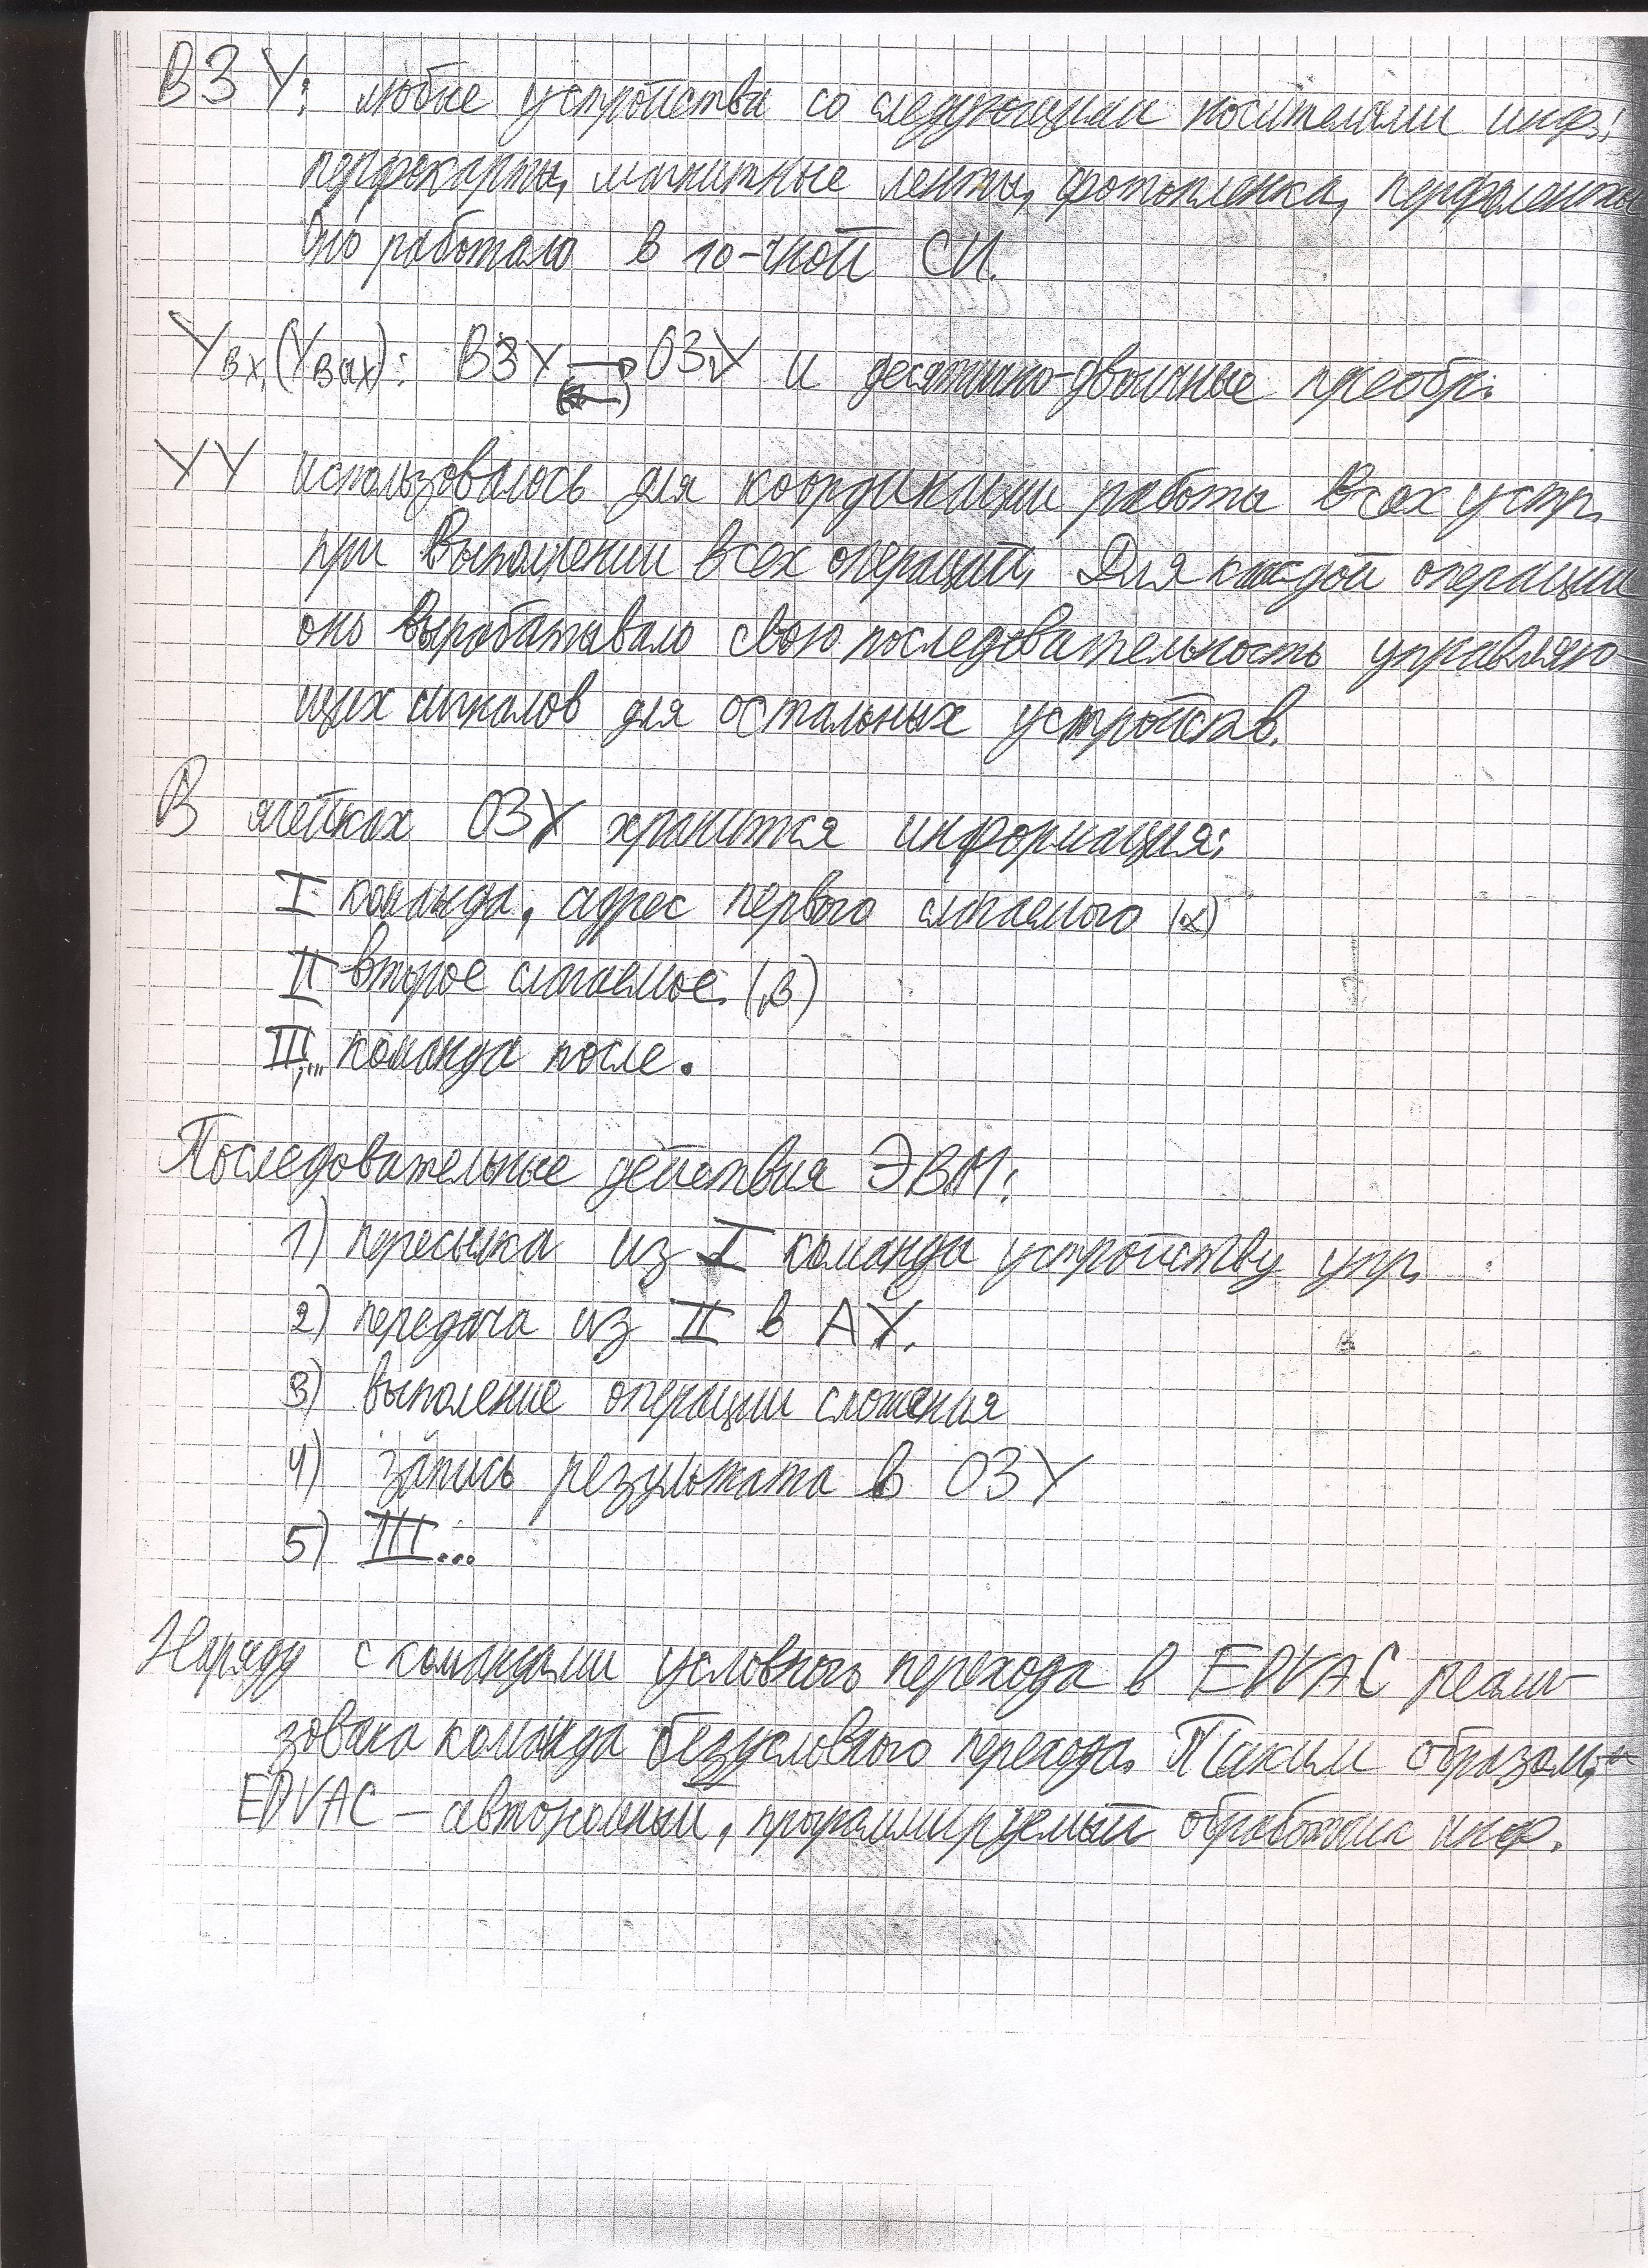 ВЗУ: любые устройства со следующими носителями инф.:
перфокарты, магнитные ленты, фотопленка, перфоленты
Оно работало в 10-чной СИ.
Увх.(Увых): ВЗУ ⇄ ОЗУ и десятично-двоичные преобр.
УУ использовалось для координации работы всех устр.
при выполнении всех операций. Для каждой операции
оно вырабатывало свою последовательность управляю-
щих сигналов для остальных устройств.
В ячейках ОЗУ хранится информация:
I команда, адрес первого слагаемого (α)
II второе слагаемое. (β)
III,... команда после.
Последовательные действия ЭВМ:
1) пересылка из I команды устройству упр.
2) передача из II в АУ.
3) выполение операции сложения
4) запись результата в ОЗУ
5) III...
Наряду с командами условного перехода в EDVAC реали-
зована команда безусловного перехода. Таким образом,
EDVAC – автономный, программируемый обработчик инф.